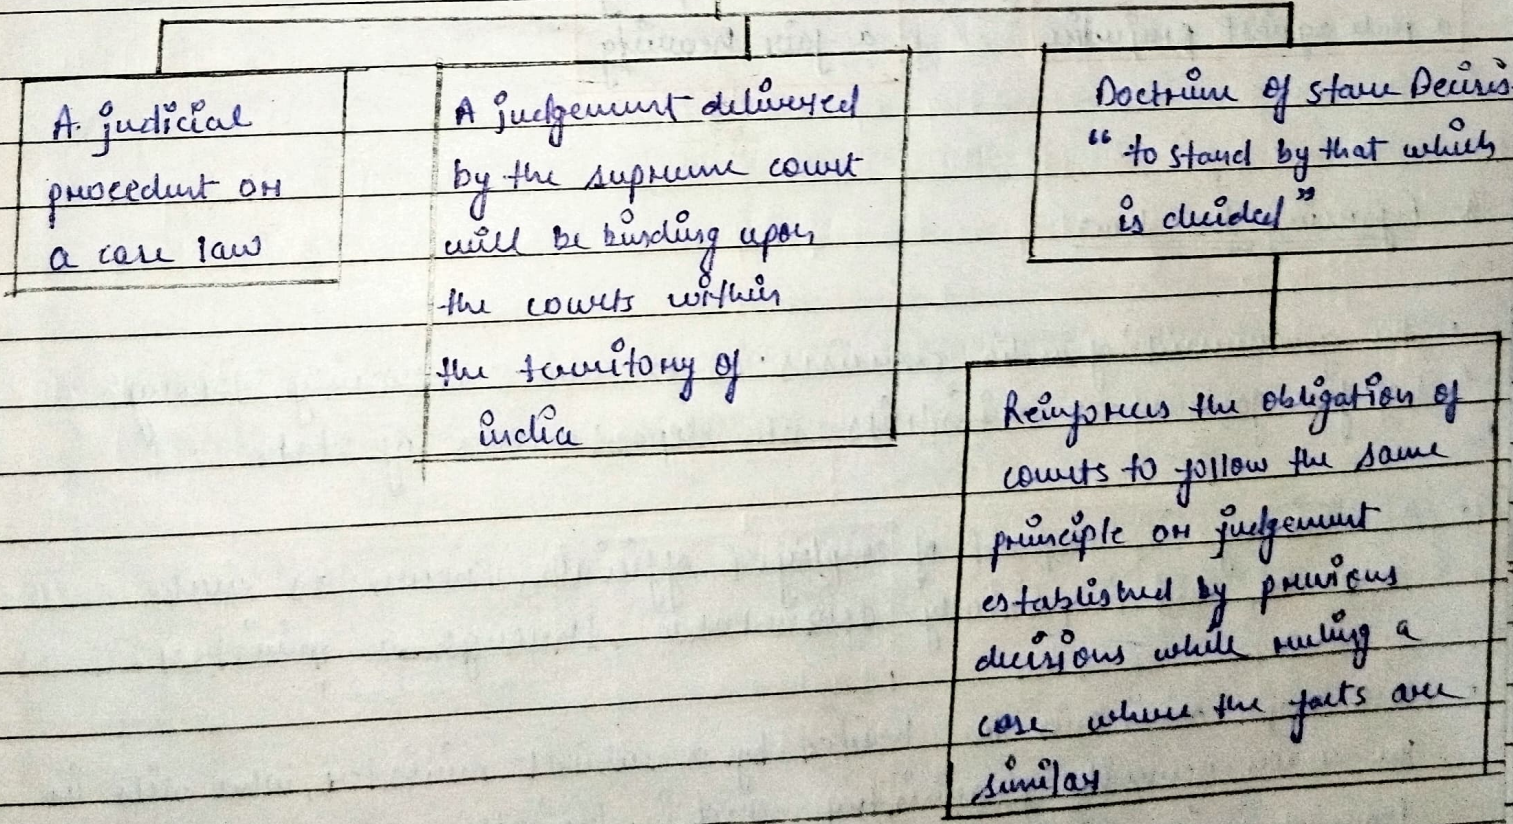 A judicial
procedent or
a case law
A judgement delivered
by the supreme court
will be binding upon
the courts within
the territory of
india
Doctrine of stare Decisis
"to stand by that which
is decided"
Reinforces the obligation of
courts to follow the same
principle or judgement
established by previous
decisions while ruling a
case where the facts are
similar